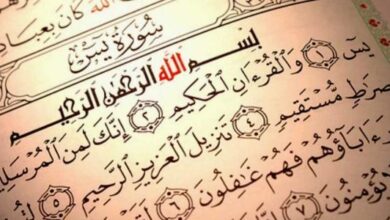 الله كان بعبا
سورة يس
بسم الله الرحمن الرحيم
يس ١ والقرءان الحكيم ٢ إنك لمن المرسلـ
صرط مستقيم ٤ تنزيل العزيز الرحيم ٥ لتـ
ءاباؤهم فهم غافلون ٦
ؤمنون ٧